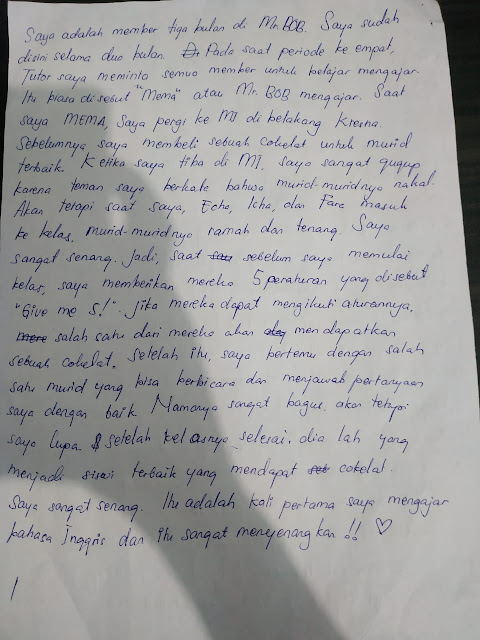 Saya adalah member tiga bulan di Mr.BOB. Saya sudah
disini selama dua bulan. Pada saat periode ke empat,
Tutor saya meminta semua member untuk belajar mengajar.
Itu biasa disebut "Mema" atau Mr. BOB mengajar. Saat
saya MEMA, Saya pergi ke MI di belakang Kresna.
Sebelumnya saya membeli sebuah cokelat untuk murid
terbaik. Ketika saya tiba di MI, saya sangat gugup
karena teman saya berkata bahwa murid-muridnya nakal.
Akan tetapi saat saya, Echa, Icha, dan Fare masuk
ke kelas, murid-muridnya ramah dan tenang. Saya
sangat senang. Jadi, saat sebelum saya memulai
kelas, saya memberikan mereka 5 peraturan yang disebut
"Give me 5!". Jika mereka dapat mengikuti aturannya,
salah satu dari mereka akan mendapatkan
sebuah cokelat. Setelah itu, saya bertemu dengan salah
satu murid yang bisa berbicara dan menjawab pertanyaan
saya dengan baik. Namanya sangat bagus. akan tetapi
saya lupa. setelah kelasnya selesai. dia lah yang
menjadi siswi terbaik yang mendapat cokelat.
Saya sangat senang. Itu adalah kali pertama saya mengajar
bahasa Inggris dan itu sangat menyenangkan!! ♡